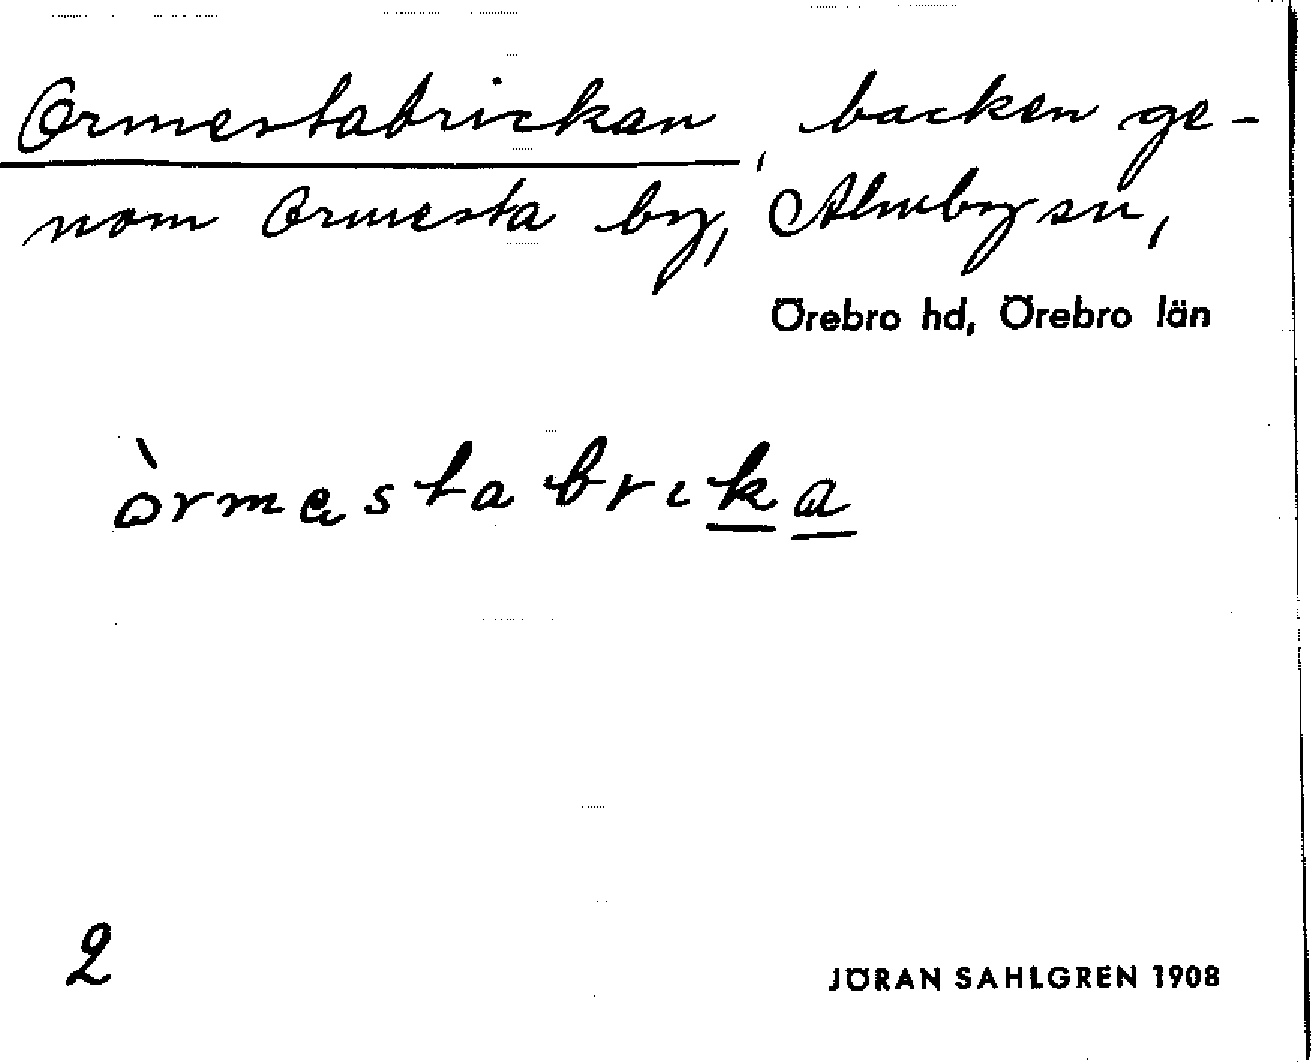 Ormestabrickan, backen ge-
nom Ormesta by, Almby sn,
Örebro hd, Örebro län
òrmestabrıka
2
JÖRAN SAHLGREN 1908